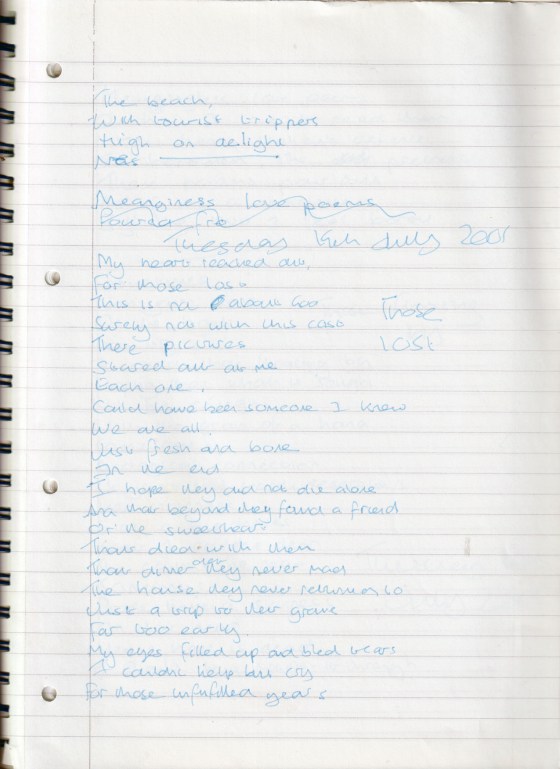 The beach,
With tourist trippers
High on delight
Meanginess love poems
Pourda fre
Tuesday July 2001
My heart reached out,
For those lost
This is not about God
Surely not with this cost
Those
There pictures
lost
Stared out at me
Each one.
Could have been someone I knew
We are all.
Just fresh and bone
In the end
I hope they did not die alone
And that beyond they found a friend
Or the sweetheart
That died with them
That dinner date they never made
The house they never returned to
Just a trip to their grave
Far too early
My eyes filled up and bled tears
I couldnt help but cry
For those unfufilled years